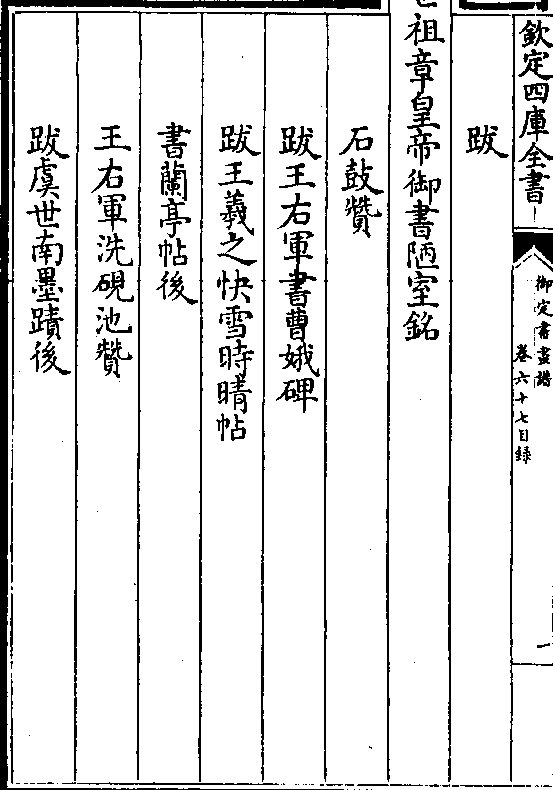 欽定四庫全書
御定書畫譜
卷六十七目録
一
跋
祖章皇帝御書陋室銘
石鼓贊
跋王右軍書曹娥碑
跋王羲之快雪時晴帖
書蘭亭帖後
王右軍洗硯池贊
跋虞世南墨蹟後